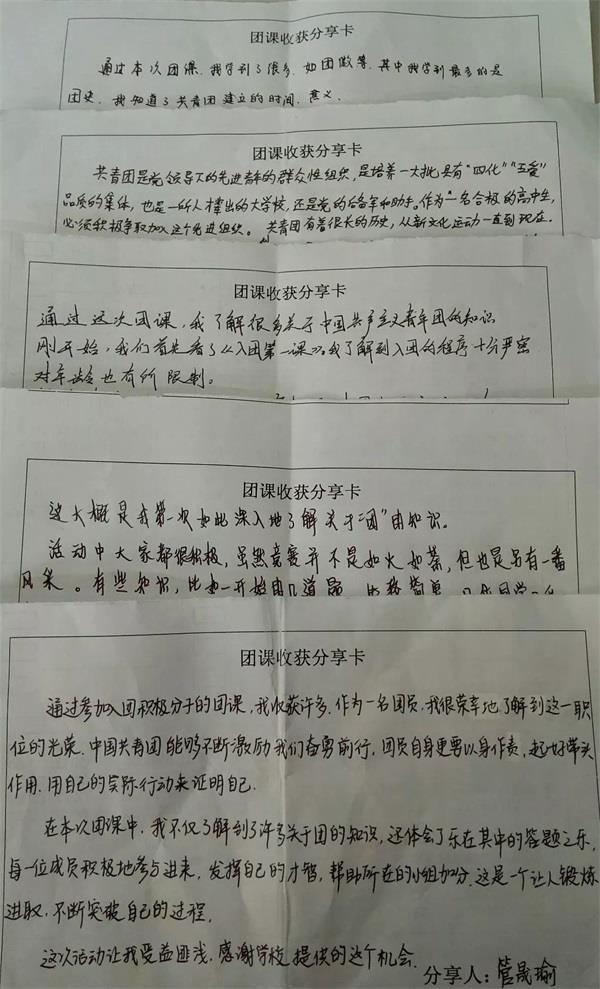 团课收获分享卡
通过本次团课，我学到了很多，如团徽等，其中我学到最多的是
团史，我知道了共青团建立的时间、意义、
团课收获分享卡
共青团是党领导下的先进青年的群众性组织，是培养一大批具有“四化”“五爱”
品质的集体，也是一所人才辈出的大学校，还是党的后备军和助手。作为一名合格的高中生，
必须积极争取加入这个先进组织。共青团有着很长的历史，从新文化运动一直到现在.
团课收获分享卡
通过这次团课，我了解很多关于中国共产主义青年团的知识
刚开始，我们首先看了《入团第一课》。我了解到入团的程序十分严密
对年龄也有所限制。
团课收获分享卡
这大概是我第一次如此深入地了解关于“团”的知识。
活动中大家都很积极，虽然竞赛并不是如火如荼，但也是另有一番
风采。有些知识，比如一开始的几道题
团课收获分享卡
通过参加入团积极分子的团课，我收获许多．作为一名团员，我很荣幸地了解到这一职
位的光荣．中国共青团能够不断激励我们奋勇前行，团员自身更要以身作责，起好带头
作用．用自己的实际行动来证明自己．
在本次团课中，我不仅了解到了许多关于团的知识，还体会了乐在其中的答题之乐，
每一位成员积极地参与进来，发挥自己的才智，帮助所在的小组加分．这是一个让人锻炼
进取，不断突破自己的过程，
这次活动让我受益匪浅，感谢学校提供的这个机会．
分享人：管晟瑜